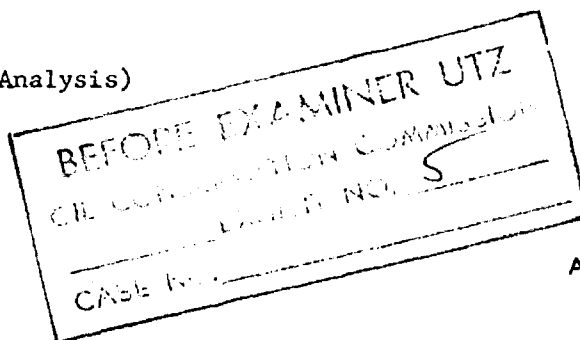 Analysis)
BEFORE EXAMINER UTZ
OIL CONSERVATION COMMISSION
EXHIBIT NO. 5
CASE NO.
A